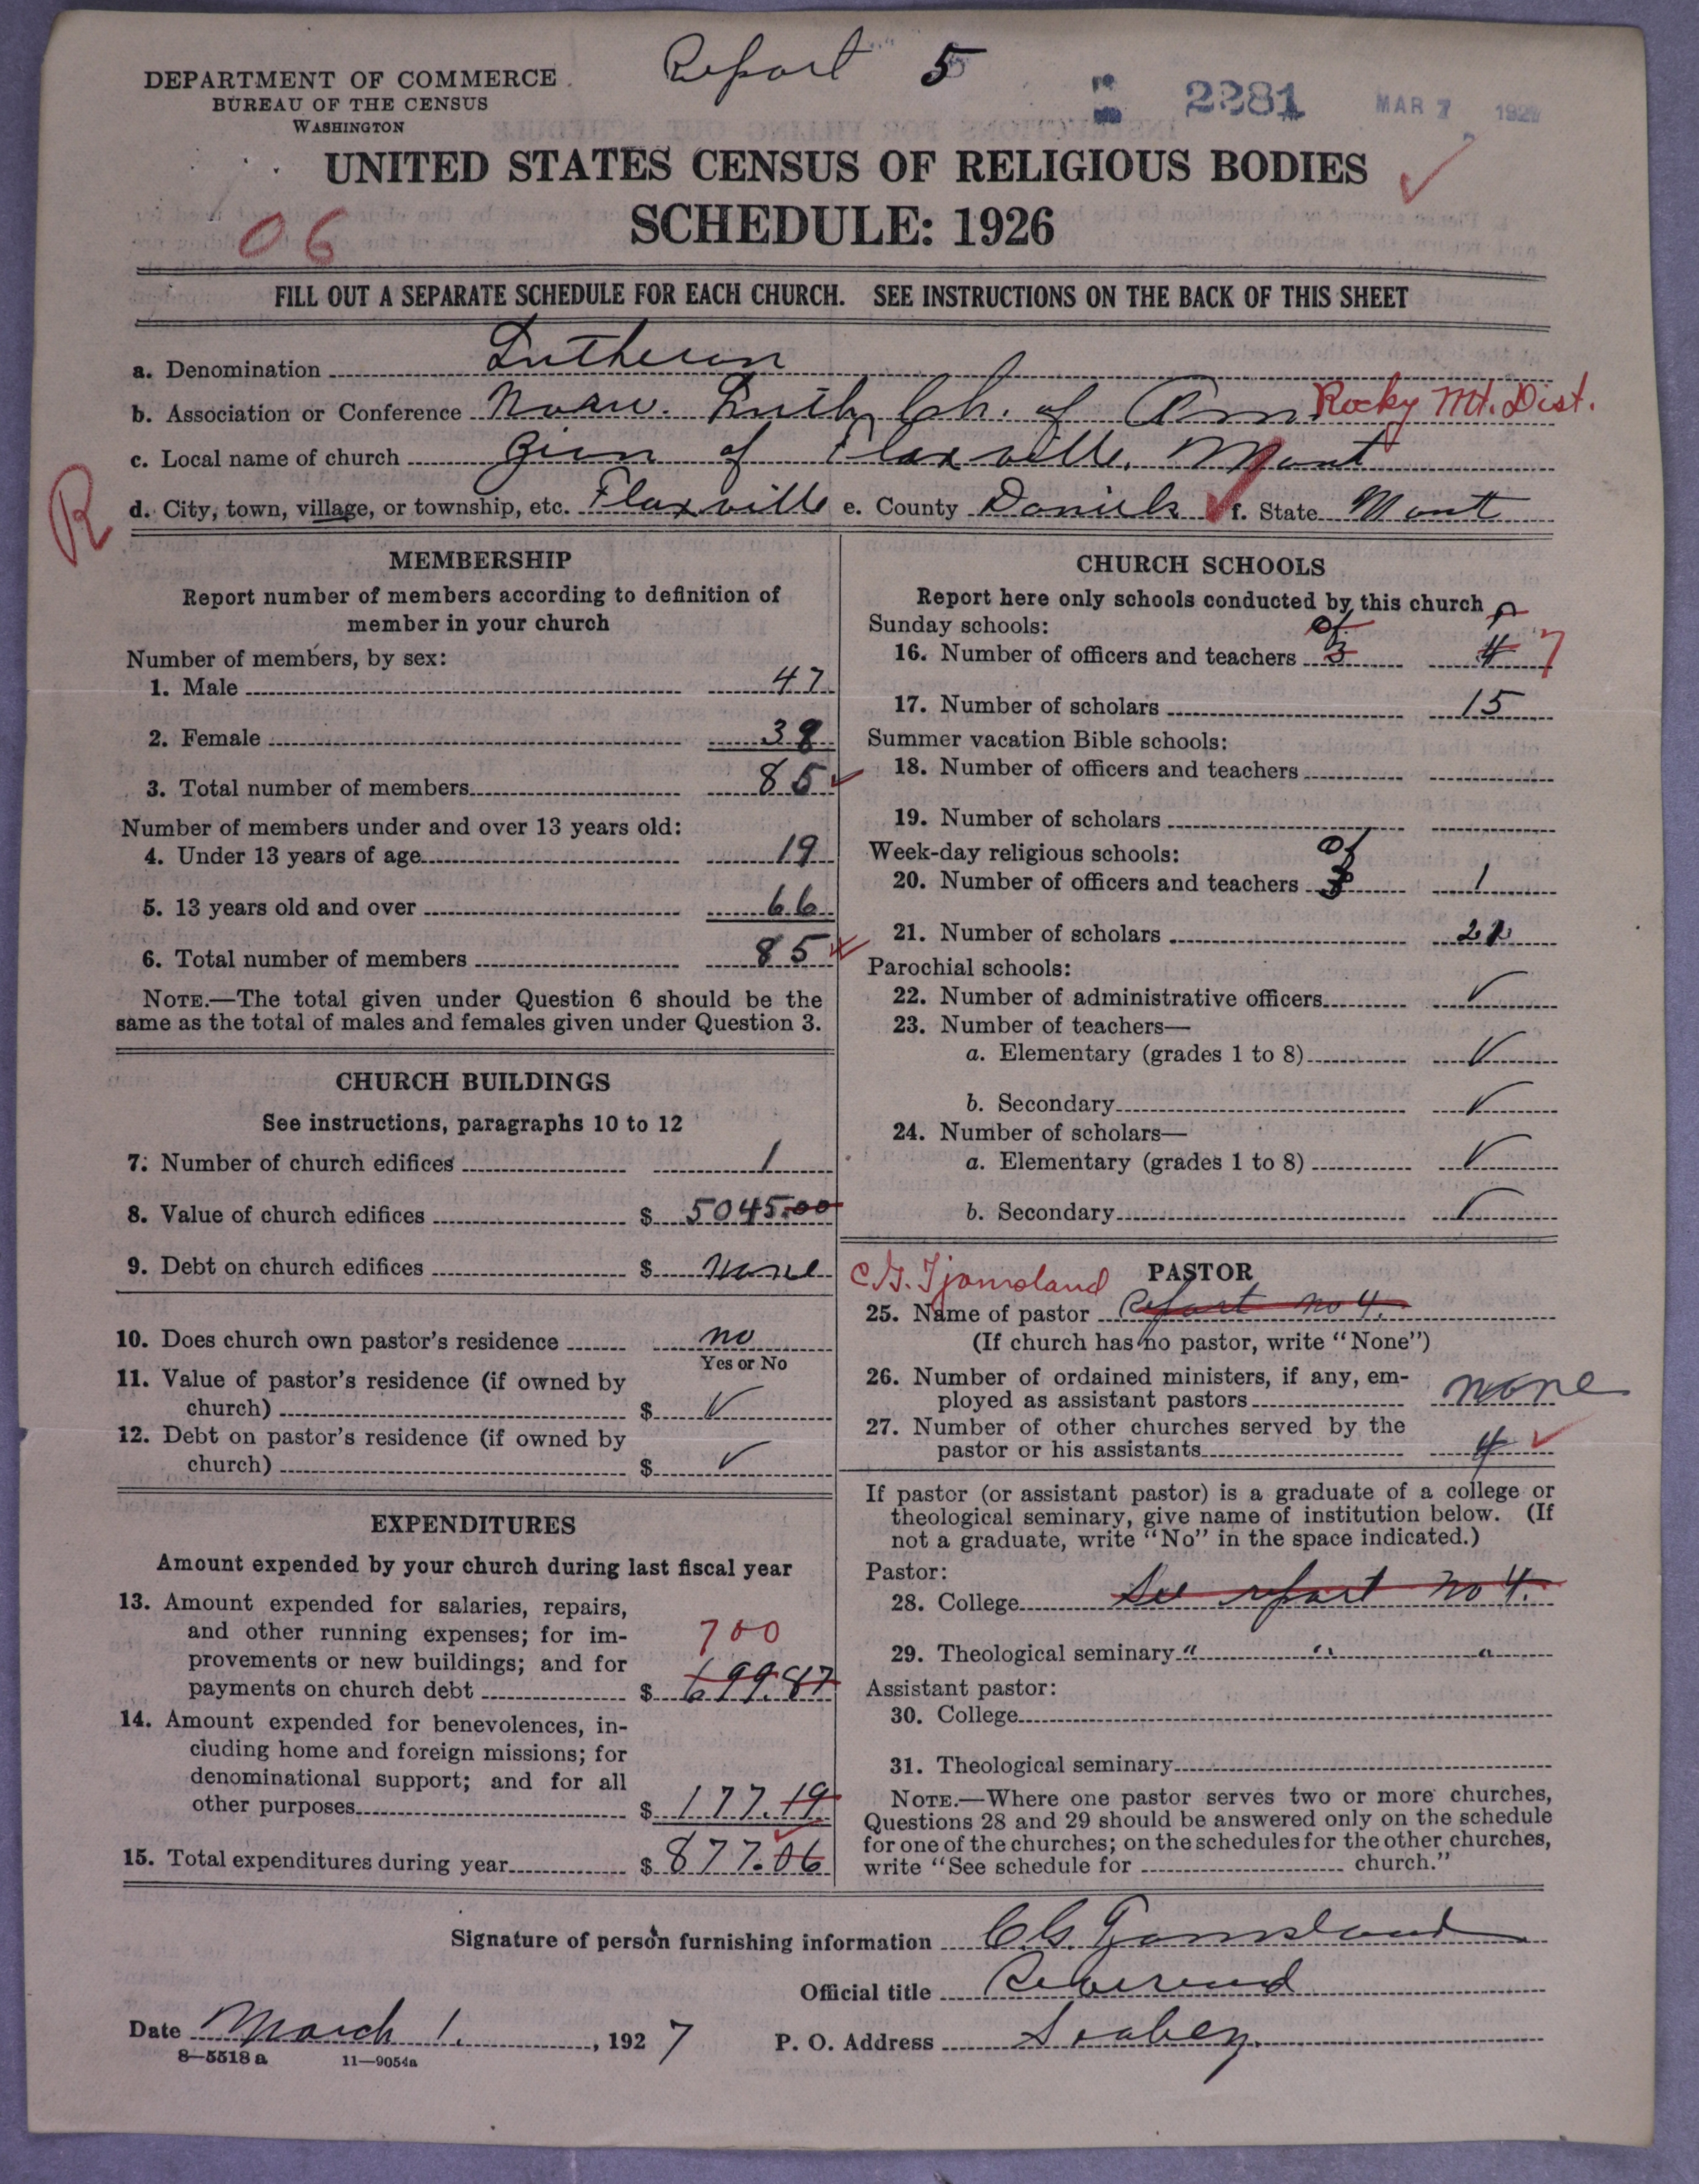 Report 5
DEPARTMENT OF COMMERCE
BUREAU OF THE CENSUS
WASHINGTON
2281 MAR 7 1927
UNITED STATES CENSUS OF RELIGIOUS BODIES
SCHEDULE: 1926
06
FILL OUT A SEPARATE SCHEDULE FOR EACH CHURCH. SEE INSTRUCTIONS ON THE BACK OF THIS SHEET
a. Denomination Lutheran
b. Association or Conference Norw. Luth. Ch. of Am. Rocky Mt. Dist.
c. Local name of church Zion of Flaxville, Mont
R
d. City, town, village, or township, etc. Flaxville e. County Daniels f. State Mont
MEMBERSHIP
Report number of members according to definition of
member in your church
Number of members, by sex:
1. Male 47
2. Female 38
3. Total number of members 85
Number of members under and over 13 years old:
4. Under 13 years of age 19
5. 13 years old and over 66
6. Total number of members 85
NOTE.—The total given under Question 6 should be the
same as the total of males and females given under Question 3.
CHURCH BUILDINGS
See instructions, paragraphs 10 to 12
7. Number of church edifices 1
8. Value of church edifices $ 5045.00
9. Debt on church edifices $ none
10. Does church own pastor's residence no
Yes or No
11. Value of pastor's residence (if owned by
church) $ ✓
12. Debt on pastor's residence (if owned by
church) $ ✓
EXPENDITURES
Amount expended by your church during last fiscal year
13. Amount expended for salaries, repairs,
and other running expenses; for im-
provements or new buildings; and for 700
payments on church debt $ 699.87
14. Amount expended for benevolences, in-
cluding home and foreign missions; for
denominational support; and for all
other purposes $ 177.19
15. Total expenditures during year $ 877.06
CHURCH SCHOOLS
Report here only schools conducted by this church
Sunday schools:
16. Number of officers and teachers of 3 4 7
17. Number of scholars 15
Summer vacation Bible schools:
18. Number of officers and teachers
19. Number of scholars
Week-day religious schools:
20. Number of officers and teachers of 1
21. Number of scholars
Parochial schools:
22. Number of administrative officers ✓
23. Number of teachers—
a. Elementary (grades 1 to 8) ✓
b. Secondary ✓
24. Number of scholars—
a. Elementary (grades 1 to 8) ✓
b. Secondary ✓
C.G. Tjomsland PASTOR
25. Name of pastor Report no 4.
(If church has no pastor, write "None")
26. Number of ordained ministers, if any, em-
ployed as assistant pastors none
27. Number of other churches served by the
pastor or his assistants 4 ✓
If pastor (or assistant pastor) is a graduate of a college or
theological seminary, give name of institution below. (If
not a graduate, write "No" in the space indicated.)
Pastor:
28. College See report no 4.
29. Theological seminary " " "
Assistant pastor:
30. College
31. Theological seminary
NOTE.—Where one pastor serves two or more churches,
Questions 28 and 29 should be answered only on the schedule
for one of the churches; on the schedules for the other churches,
write "See schedule for church."
Signature of person furnishing information C.G. Tjomsland
Official title Reverend
Date March 1, 1927 P. O. Address Scobey.
8—5518 a 11—9054a